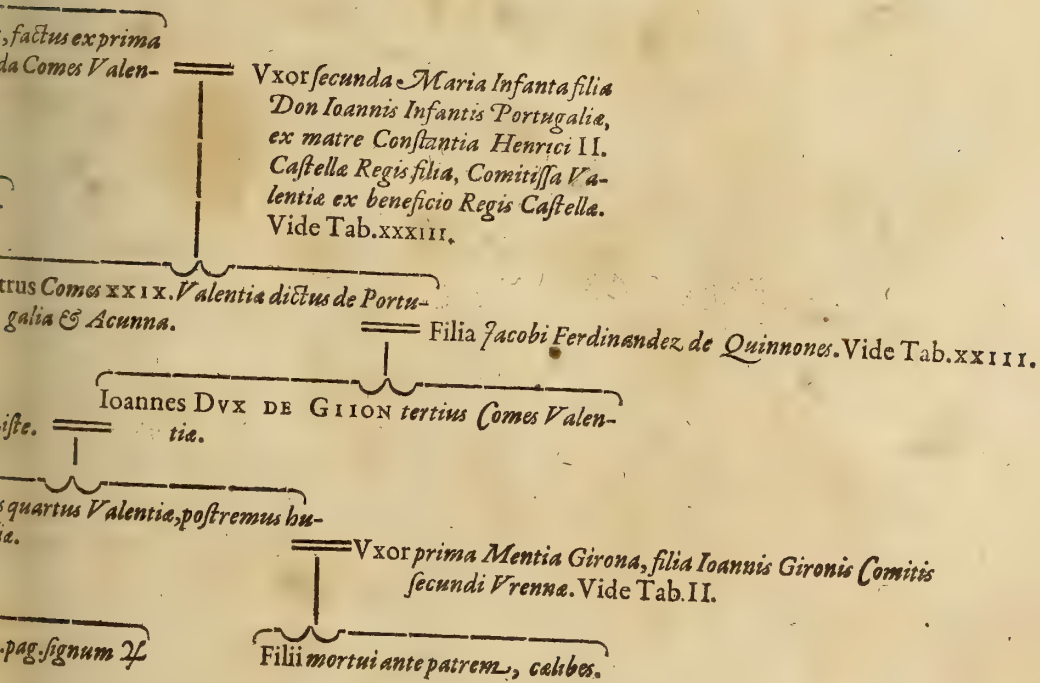 , factus ex prima
da Comes Valen-
Vxor secunda Maria Infanta filia
Don Ioannis Infantis Portugaliæ,
ex matre Constantia Henrici II.
Castellæ Regis filia, Comitissa Va-
lentiæ ex beneficio Regis Castellæ.
Vide Tab.XXXIII.
trus Comes XXIX. Valentiæ dictus de Portu-
galia & Acunna.
Filia Jacobi Ferdinandez de Quinnones. Vide Tab.XXIII.
Ioannes DVX DE GIION tertius Comes Valen-
tiæ.
iste.
s quartus Valentiæ, postremus hu-
iæ.
Vxor prima Mentia Girona, filia Ioannis Gironis Comitis
secundi Vrennæ. Vide Tab.II.
.pag.signum ♃
Filii mortui ante patrem, cælibes.